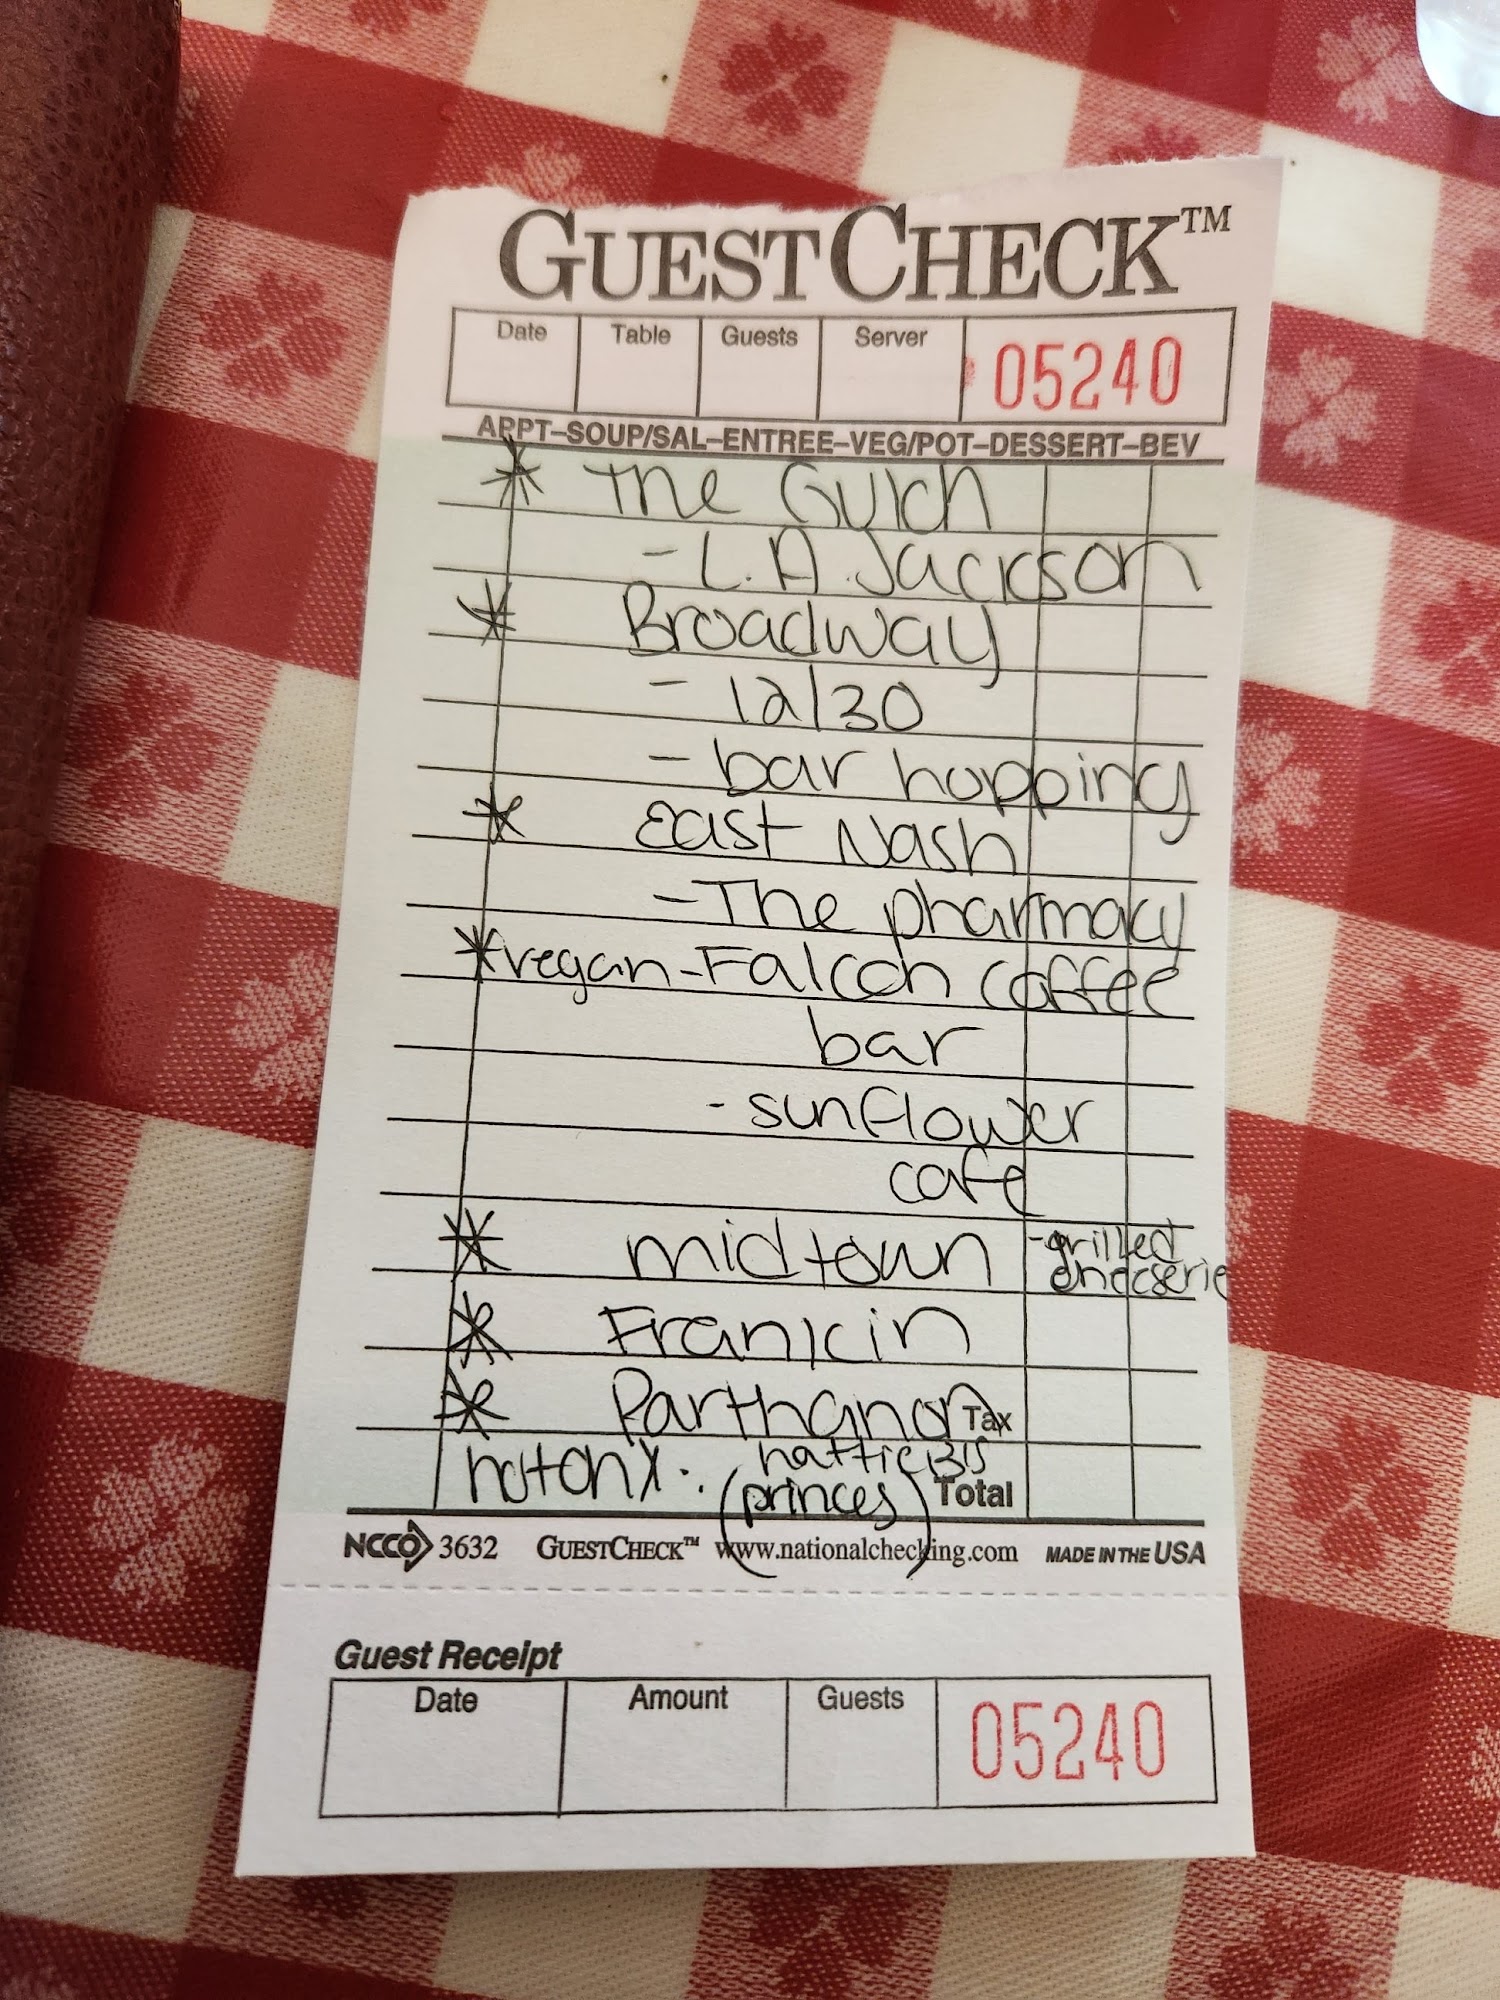 GUESTCHECK™
Date Table Guests Server 05240
APPT–SOUP/SAL–ENTREE–VEG/POT–DESSERT–BEV
* The Gulch
- L.A. Jackson
* Broadway
- 12/30
- bar hopping
* East Nash
- The pharmacy
*vegan - Falcon coffee
bar
- sunflower
cafe
* midtown - grilled
cheeserie
* Franklin
* Parthanon Tax
hot chx: hattie B's
(princes) Total
NCCO 3632 GUESTCHECK™ www.nationalchecking.com MADE IN THE USA
Guest Receipt
Date Amount Guests 05240